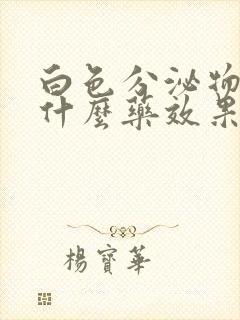 白色分泌物
什麼藥效果
楊寶華